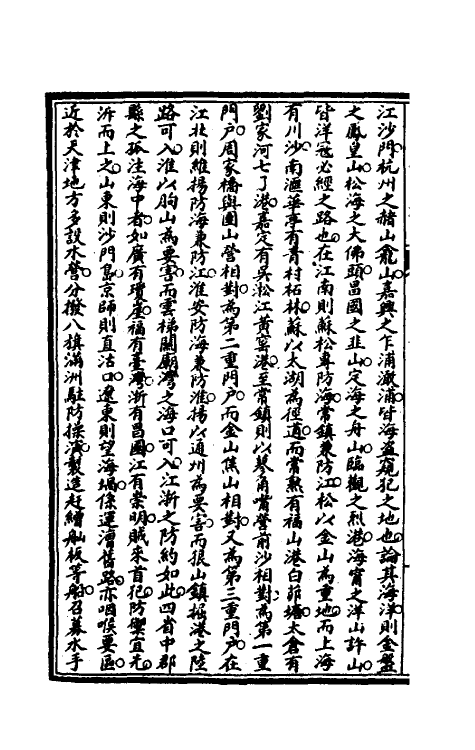 江沙門杭州之赭山龕山嘉興之乍浦澉浦皆海盜窺犯之地也論其海洋則金盤
之鳳皇山松海之大佛頭昌國之韭山定海之舟山臨觀之烈港海甯之洋山許山
皆洋寇必經之路也在江南則蘇松專防海常鎮兼防江松以金山為重地而上海
有川沙南滙華亭有青村柘林蘇以太湖為徑道而常熟有福山港白茆塘太倉有
劉家河七丫港嘉定有吳淞江黃窰港至常鎮則以拳角嘴營前沙相對為第一重
門戶周家橋與圌山營相對為第二重門戶而金山焦山相對又為第三重門戶在
江北則維揚防海兼防江淮安防海兼防淮揚以通州為要害而狼山鎮掘港之陸
路可入淮以朐山為要害而雲梯關廟灣之海口可入江浙之防約如此四省中郡
縣之孤注海中者如廣有瓊崖福有臺灣浙有昌國江有崇明賊來首犯防禦宜先
泝而上之山東則沙門島京師則直沽口遼東則望海堝係運漕舊路亦咽喉要區
近於天津地方多設水營分撥八旗滿洲駐防操演製造赶繒舢板等船召募水手